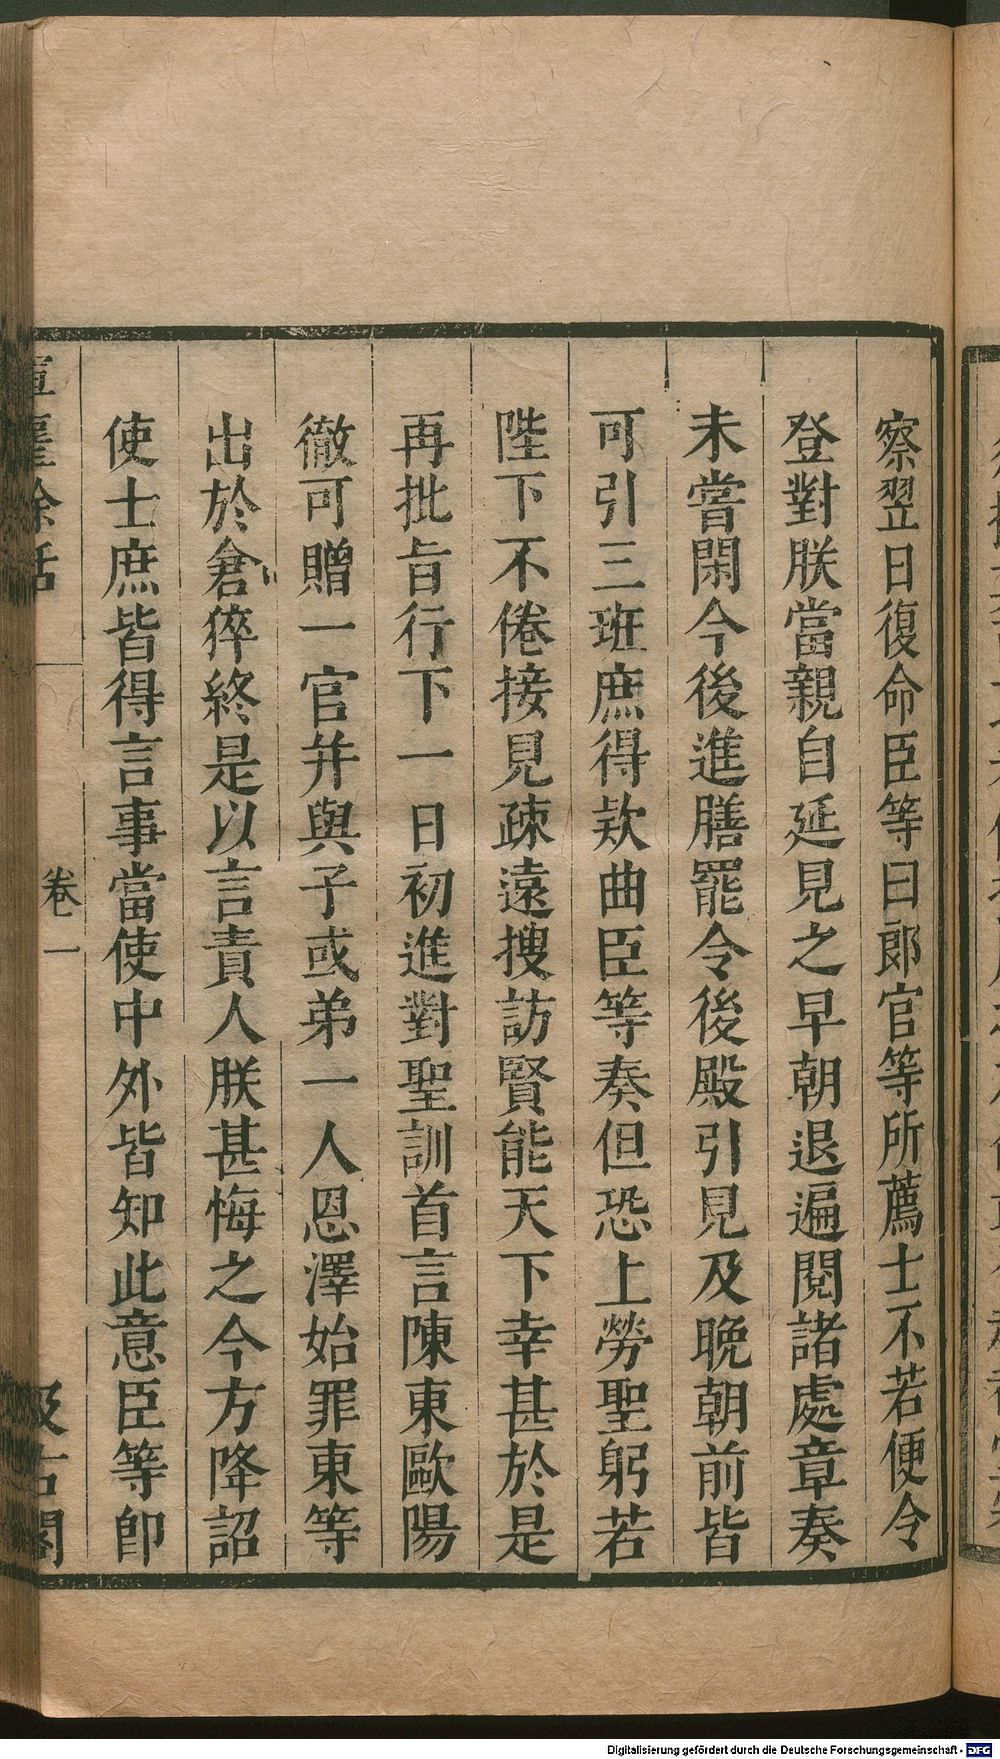 察翌日復命臣等曰郎官等所薦士不若便令
登對朕當親自延見之早朝退遍閱諸處章奏
未嘗閑今後進膳罷令後殿引見及晚朝前皆
可引三班庶得欵曲臣等奏但恐上勞聖躬若
陛下不倦接見疎遠搜訪賢能天下幸甚於是
再批旨行下一日初進對聖訓首言陳東歐陽
徹可贈一官并與子或弟一人恩澤始罪東等
出於倉猝終是以言責人朕甚悔之今方降詔
使士庶皆得言事當使中外皆知此意臣等卽
卷一
汲古閣
Digitalisierung gefördert durch die Deutsche Forschungsgemeinschaft - DFG